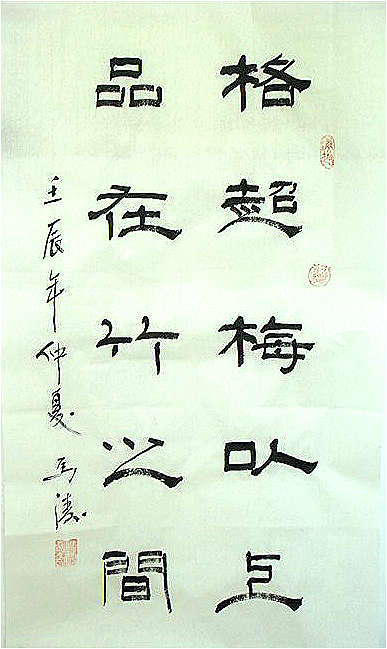 格超梅以上
品在竹之間
壬辰年仲夏 马